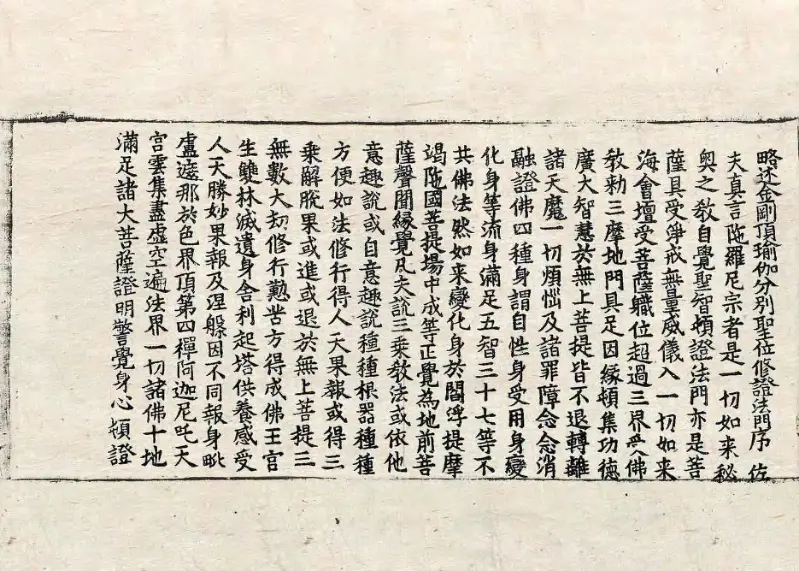 略述金剛頂瑜伽分別聖位修證法門序 佐
夫真言陁羅尼宗者是一切如来秘
奥之教自覺聖智頓證法門亦是菩
薩具受淨戒無量威儀入一切如来
海會壇受菩薩職位超過三界受佛
教勅三摩地門具足因縁頓集功德
廣大智慧於無上菩提皆不退轉離
諸天魔一切煩惱及諸罪障念念消
融證佛四種身謂自性身受用身變
化身等流身滿足五智三十七等不
共佛法然如来變化身於閻浮提摩
竭陁國菩提場中成等正覺為地前菩
薩聲聞縁覺凡夫說三乗教法或依他
意趣說或自意趣說種種根器種種
方便如法修行得人天果報或得三
乗解脫果或進或退於無上菩提三
無數大劫修行懃苦方得成佛王宫
生雙林滅遺身舍利起塔供養感受
人天勝妙果報及涅槃因不同報身毗
盧遮那於色界頂第四禪阿迦尼吒天
宫雲集盡虚空遍法界一切諸佛十地
滿足諸大菩薩證明警覺身心頓證